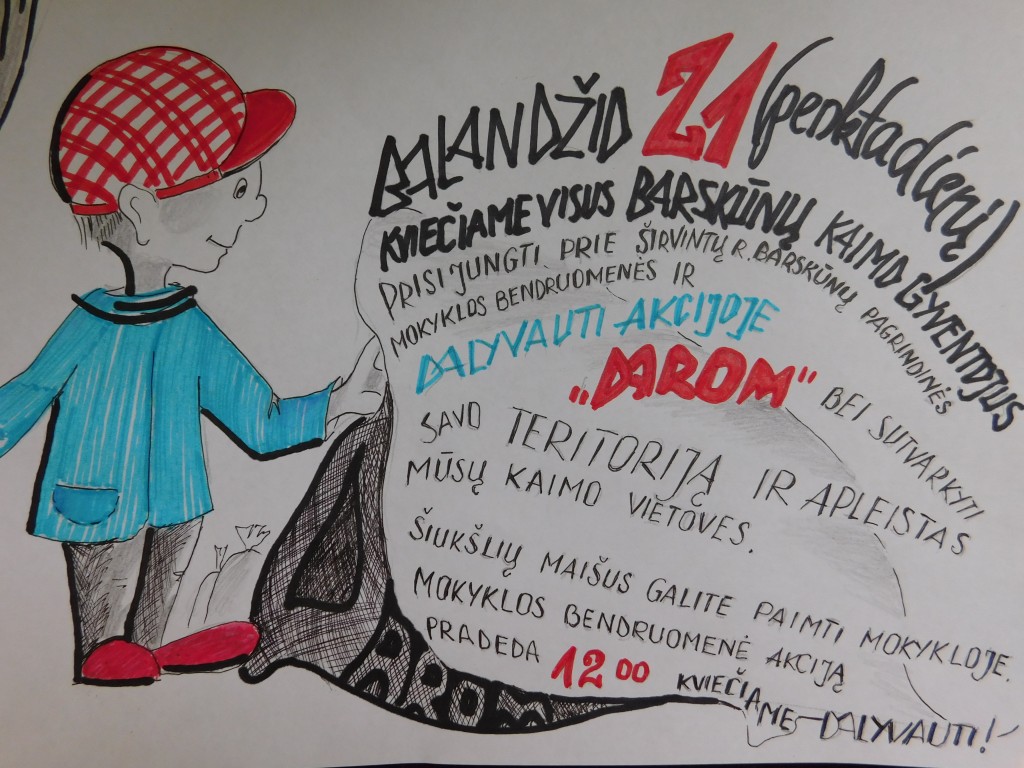 BALANDŽIO 21 (penktadienį)
KVIEČIAME VISUS BARSKŪNŲ KAIMO GYVENTOJUS
PRISIJUNGTI PRIE ŠIRVINTŲ R. BARSKŪNŲ PAGRINDINĖS
MOKYKLOS BENDRUOMENĖS IR
DALYVAUTI AKCIJOJE
„DAROM“ BEI SUTVARKYTI
SAVO TERITORIJĄ IR APLEISTAS
MŪSŲ KAIMO VIETOVES.
ŠIUKŠLIŲ MAIŠUS GALITE PAIMTI MOKYKLOJE.
MOKYKLOS BENDRUOMENĖ AKCIJĄ
PRADEDA 12 00 KVIEČIAME DALYVAUTI!
DAROM